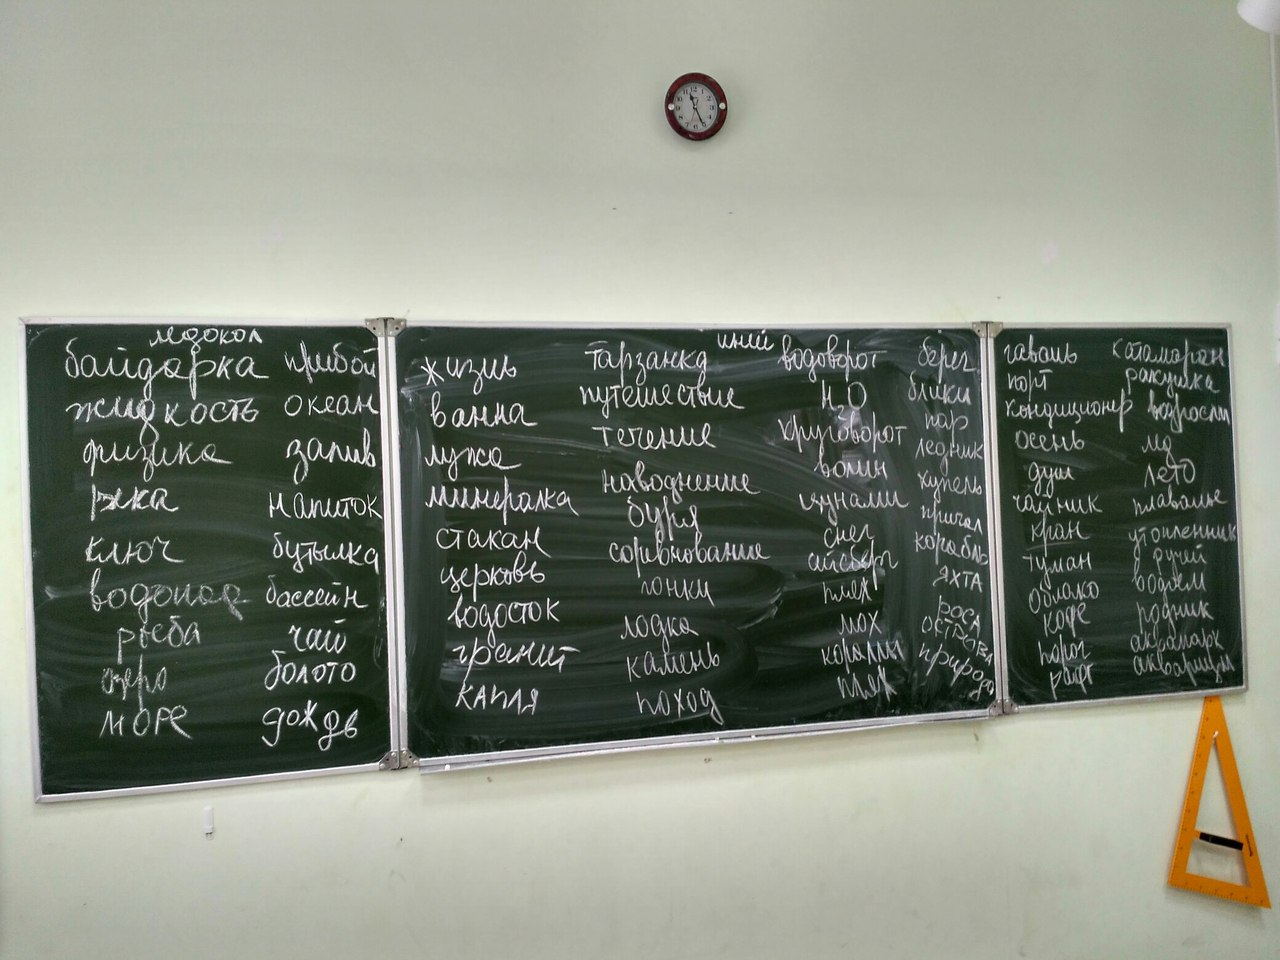 ледокол
байдарка
жидкость
физика
река
ключ
водопад
рыба
озеро
море
прибой
океан
залив
напиток
бутылка
бассейн
чай
болото
дождь
жизнь
ванна
лужа
минералка
стакан
церковь
водосток
гранит
капля
тарзанка
путешествие
течение
наводнение
буря
соревнование
гонки
лодка
камень
поход
иней
водоворот
H2O
круговорот
цунами
снег
айсберг
мох
кораллы
берег
блики
пар
ледник
купель
причал
корабль
яхта
роса
острова
природа
гавань
порт
кондиционер
осень
душ
чайник
кран
туман
облако
кофе
порог
рафт
катамаран
ракушка
лёд
лето
плаванье
утопленник
ручей
водоём
родник
аквапарк
аквариум